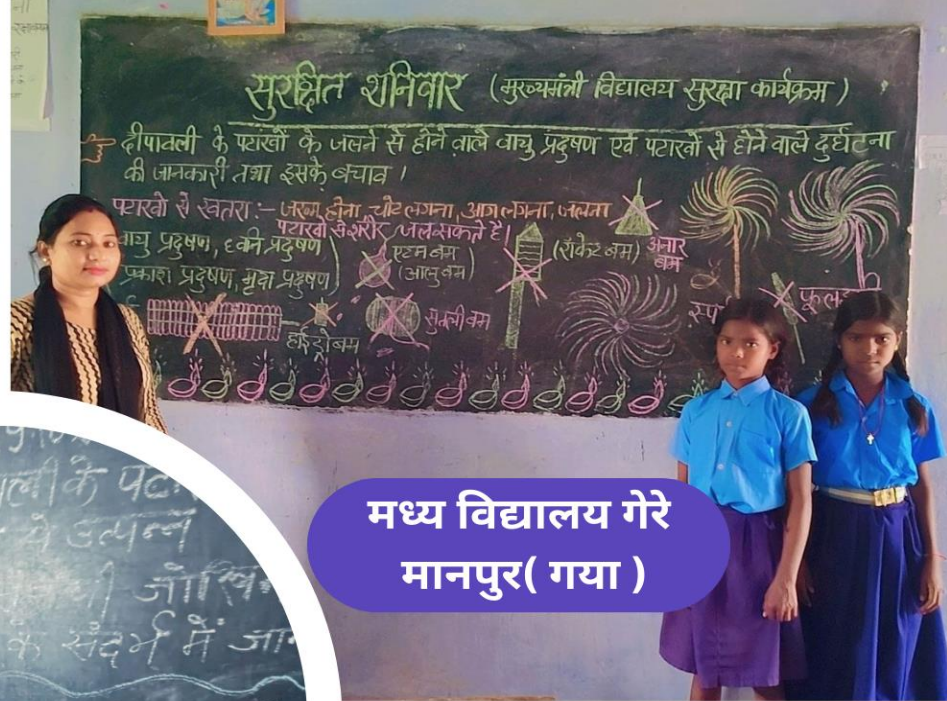 सुरक्षित शनिवार (मुख्यमंत्री विद्यालय सुरक्षा कार्यक्रम)
दीपावली के पटाखों के जलने से होने वाले वायु प्रदुषण एवं पटाखों से होने वाले दुर्घटना
की जानकारी तथा इसके बचाव ।
पटाखो से खतरा :- जख्म होना चोट लगना, आग लगना, जलना
पटाखो से शरीर जल सकते है।
वायु प्रदुषण, ध्वनि प्रदुषण
प्रकाश प्रदुषण, मृदा प्रदुषण
एटम बम
(आलु बम)
(रॉकेट बम)
अनार
बम
हाईड्रो बम
सुतली बम
मध्य विद्यालय गेरे
मानपुर( गया )
से उत्पन्न
के संदर्भ में